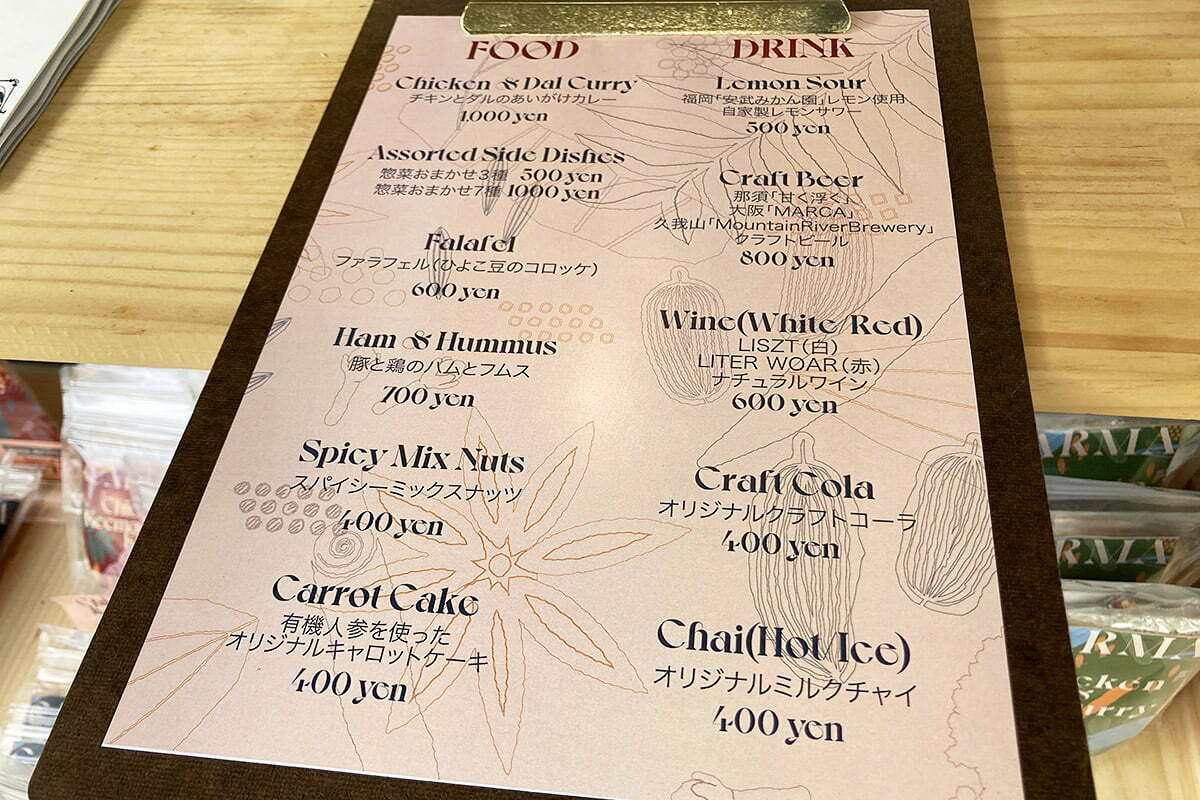 FOOD
Chicken & Dal Curry
チキンとダルのあいがけカレー
1,000 yen
Assorted Side Dishes
惣菜おまかせ3種 500 yen
惣菜おまかせ7種 1000 yen
Falafel
ファラフェル(ひよこ豆のコロッケ)
600 yen
Ham & Hummus
豚と鶏のハムとフムス
700 yen
Spicy Mix Nuts
スパイシーミックスナッツ
400 yen
Carrot Cake
有機人参を使った
オリジナルキャロットケーキ
400 yen
DRINK
Lemon Sour
福岡「安武みかん園」レモン使用
自家製レモンサワー
500 yen
Craft Beer
那須「甘く浮く」
大阪「MARCA」
久我山「MountainRiverBrewery」
クラフトビール
800 yen
Wine(White/Red)
LISZT(白)
LITER WOAR(赤)
ナチュラルワイン
600 yen
Craft Cola
オリジナルクラフトコーラ
400 yen
Chai(Hot/Ice)
オリジナルミルクチャイ
400 yen